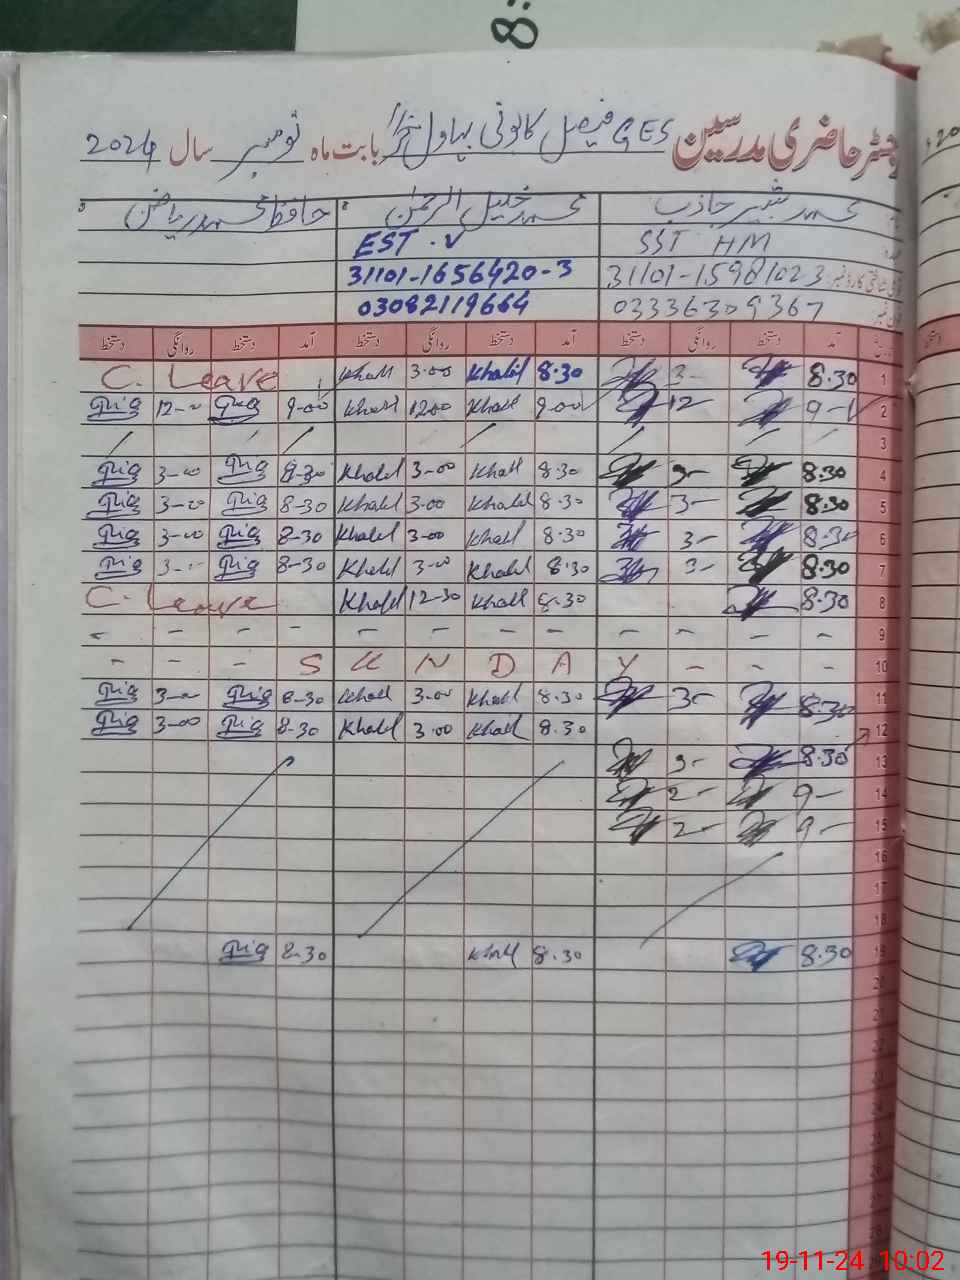 8:
رجسٹر حاضری مدرسین GES فیصل کالونی بہاول نگر بابت ماہ نومبر سال 2024
محمد شبیر جاذب محمد خلیل الرحمٰن حافظ محمد ریاض
SST HM EST.V
31101-1598102-3 31101-1656420-3
03336309367 03082119664
آمد دستخط روانگی دستخط آمد دستخط روانگی دستخط آمد دستخط روانگی دستخط
1 8.30 3- 8.30 Khalil 3.00 Khalil C. Leave
2 9- 12- 9.00 Khalil 12.00 Khalil 9-00 12-00
3
4 8.30 3- 8.30 Khalil 3-00 Khalil 8-30 3-00
5 8.30 3- 8.30 Khalil 3.00 Khalil 8-30 3-00
6 8.30 3- 8.30 Khalil 3-00 Khalil 8-30 3-00
7 8.30 3- 8.30 Khalil 3-00 Khalil 8-30 3-00
8 8.30 8.30 Khalil 12-30 Khalil C. Leave
9 - - - - - - - - - - - -
10 - - - S U N D A Y - - -
11 8.30 3- 8.30 Khalil 3.00 Khalil 8-30 3-00
12 8.30 Khalil 3.00 Khalil 8-30 3-00
13 8.30 3-
14 9- 2-
15 9- 2-
16
17
18
19 8.30 8.30 Khalil 8-30
20
21
22
23
24
25
26
19-11-24 10:02